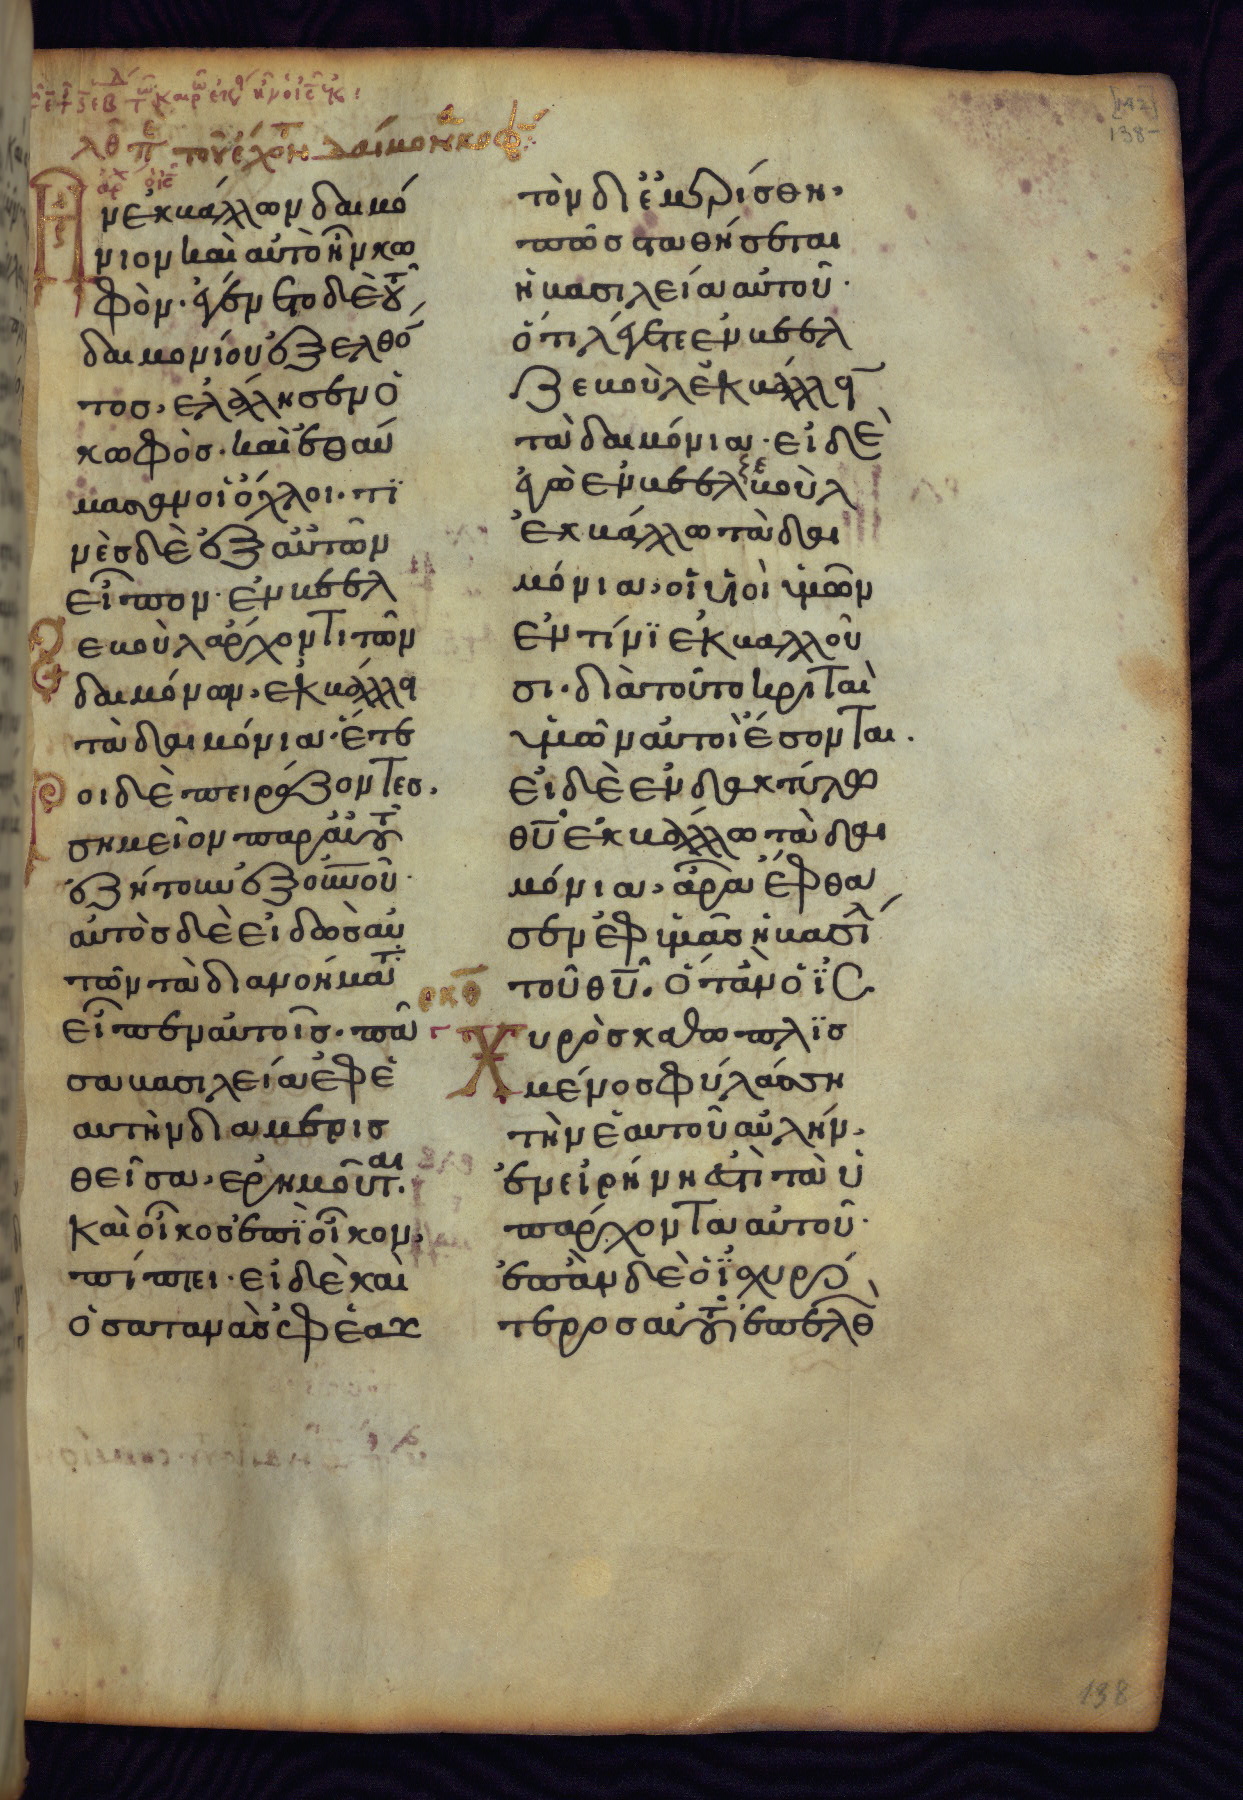 λθ πε τοῦ ἔχοντ δαίμον κοφ
ν ἐκβάλλων δαιμό
νιον καὶ αὐτὸ ἦν κω
φόν· ἐγένετο δὲ τοῦ
δαιμονίου ἐξελθό
τος, ἐλάλησεν ὁ
κωφὸς· καὶ ἐθαύ
μασαν οἱ ὄχλοι· τι
νὲς δὲ ἐξ αὐτῶν
εἶπον· ἐν βεελ
ζεβοὺλ ἄρχοντι τῶν
δαιμόνων, ἐκβάλλει
τὰ δαιμόνια· ἕτε
ροι δὲ πειράζοντες,
σημεῖον παρ αὐτοῦ
ἐζήτουν ἐξ οὐνοῦ·
αὐτὸς δὲ εἰδὼς αὐ
τῶν τὰ διανοήματ
εἶπεν αὐτοῖς· πᾶ
σα βασιλεία ἐφ ἑ
αυτὴν διαμερισ
θεῖσα, ἐρημοῦται.
Καὶ οἶκος ἐπὶ οἶκον,
πίπτει· εἰ δὲ καὶ
ὁ σατανᾶς ἐφ ἑαυ
τὸν διεμερίσθη,
πῶς σταθήσεται
ἡ βασιλεία αὐτοῦ·
ὅτι λέγετε ἐν βεελ
ζεβοὺλ ἐκβάλλειν
τὰ δαιμόνια· εἰ δὲ
ἐγὼ ἐν βεελζεβοὺλ
ἐκβάλλω τὰ δαι
μόνια, οἱ υἱοὶ ὑμῶν
ἐν τίνι ἐκβαλλοῦ
σι· διὰ τοῦτο κριταὶ
ὑμῶν αὐτοὶ ἔσονται.
εἰ δὲ ἐν δακτύλῳ
θυ ἐκβάλλω τὰ δαι
μόνια, ἄρα ἔφθα
σεν ἐφ ὑμᾶς ἡ βασιλ
τοῦ θυ. Ὅταν ὁ ἰσ
ρκθ
χυρὸς καθωπλισ
μένος φυλάσση
τὴν ἑαυτοῦ αὐλήν,
ἐν εἰρήνη ἐστὶ τὰ ὑ
πάρχοντα αὐτοῦ·
ἐπὰν δὲ ὁ ἰσχυρό
τερος αὐτοῦ ἐπελθὼ
138